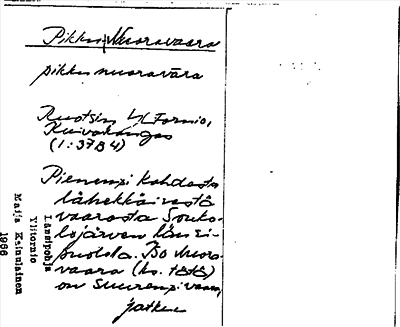 Pikku Nuoravaara
pikku nuoravāra
Ruotsin YliTornio,
Kuivakangas
(1:37B4)
Pienempi kahdesta
lähekkäisestä
vaarasta Souko-
lojärven länsi-
puolella. Iso Nuora-
vaara (ks. tätä)
on suurempi vaara,
jatkuu
Länsipohja
Ylitornio
Maija Kainulainen
1966